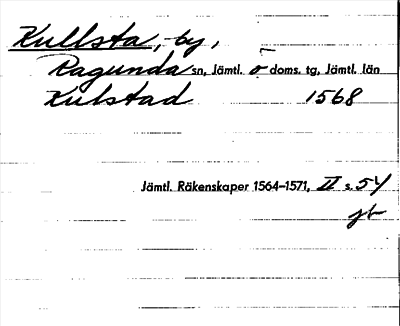 Kullsta, by,
Ragunda sn, Jämtl. ö doms. tg, Jämtl. län
Kulstad 1568
Jämtl. Räkenskaper 1564–1571, II s. 54
jb